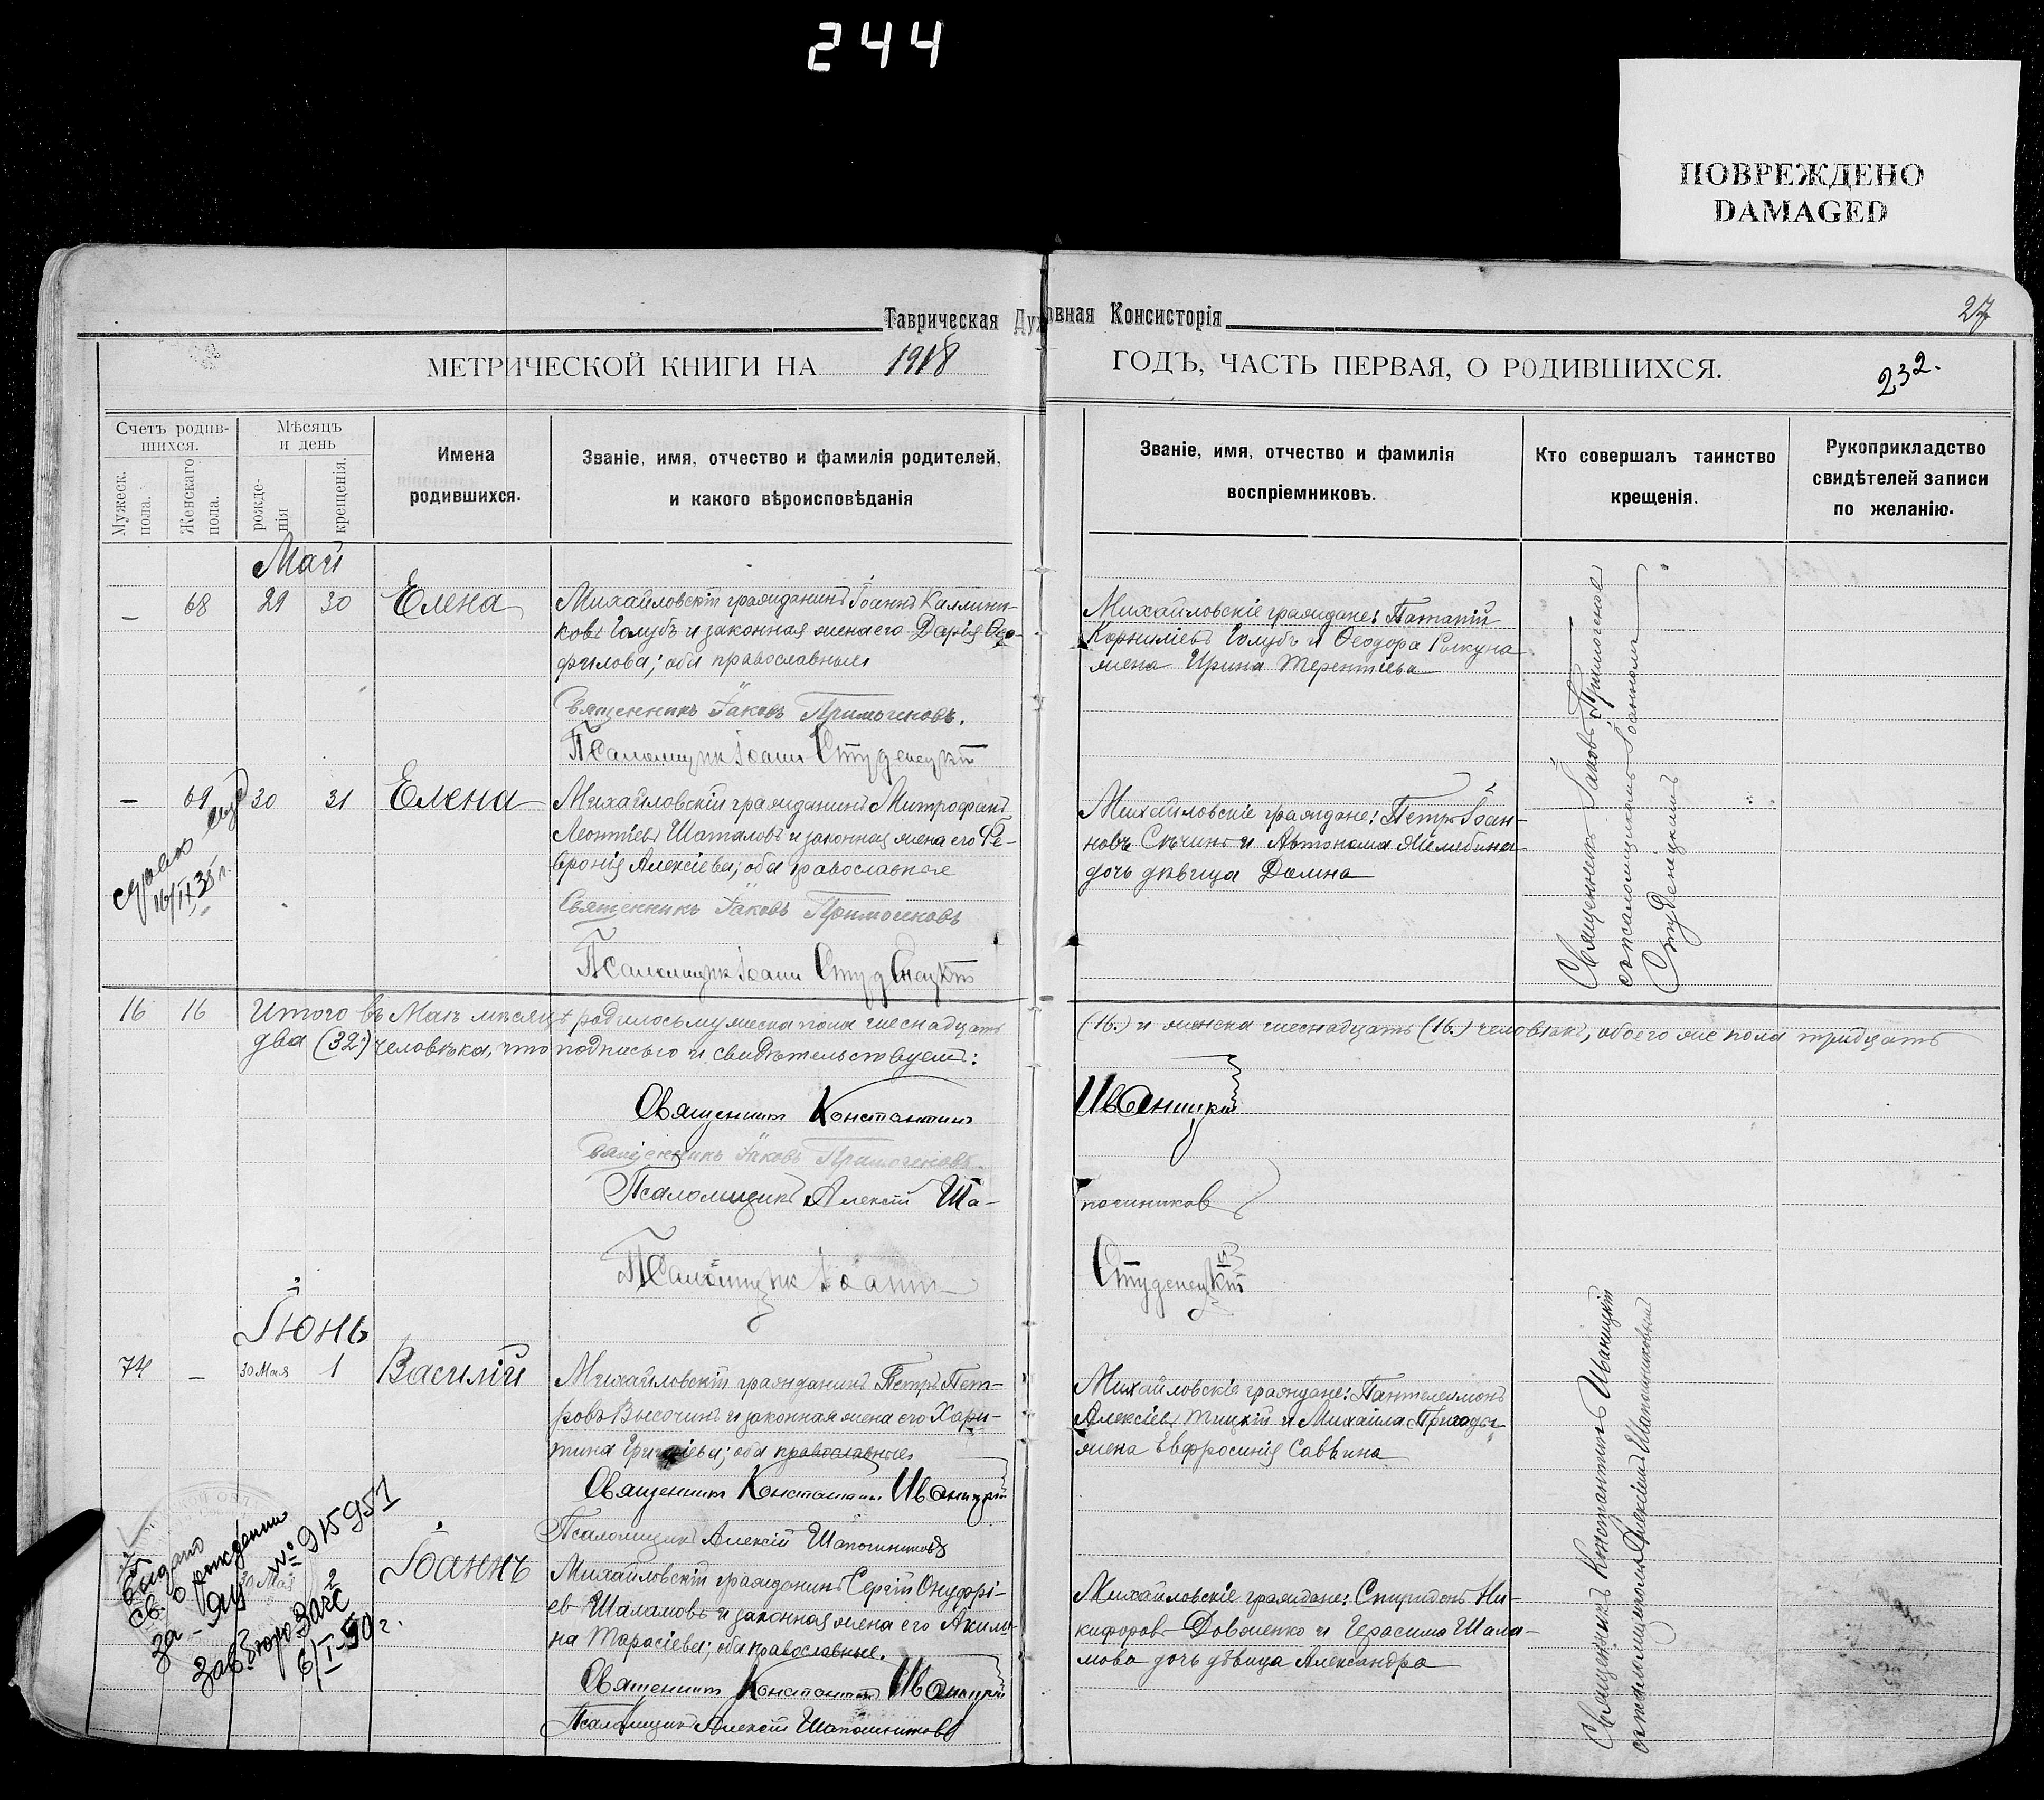 244
ПОВРЕЖДЕНО
DAMAGED
Таврическая Духовная Консисторія
27
МЕТРИЧЕСКОЙ КНИГИ НА 1918 ГОДЪ, ЧАСТЬ ПЕРВАЯ, О РОДИВШИХСЯ.
232.
Счетъ родив-
шихся.
Мужеск. пола.
Женскаго пола.
Мѣсяцъ
и день
рожде-
нія
крещенія.
Имена
родившихся.
Званіе, имя, отчество и фамилія родителей,
и какого вѣроисповѣданія
Званіе, имя, отчество и фамилія
воспріемниковъ.
Кто совершалъ таинство
крещенія.
Рукоприкладство
свидѣтелей записи
по желанію.
Май
— 68 29 30 Елена
Михайловскій гражданинъ Іоаннъ Каллини-
ковъ Голубъ и законная жена его Дарія Ѳео-
филова; оба православные
Священникъ Іаковъ Примогеновъ.
Псаломщик Іоанн Студенецкій
Михайловскіе граждане:
Корниліевъ Голубъ и Ѳеодора
жена Ирина Терентіева
Священникъ Іаковъ Примогеновъ
съ псаломщикомъ Іоанномъ
Студенецкимъ
— 69 30 31 Елена
Михайловскій гражданинъ Митрофанъ
Леонтіевъ Шаталовъ и законная жена его Фе-
вронія Алексіева; оба православные
Священникъ Іаковъ Примогеновъ
Псаломщик Іоанн Студенецкій
Михайловскіе граждане: Петръ Іоан-
новъ Сѣчинъ и Автонома
дочь дѣвица Домна
16 16 Итого въ Маѣ мѣсяцѣ родилось мужеска пола шеснадцать (16.) и женска шеснадцать (16.) человѣкъ, обоего же пола тридцать
два (32) человѣка, что подписью и свидѣтельствуемъ:
Священник Константин Иваницкій
Священникъ Іаковъ Примогеновъ.
Псаломщикъ Алексій Ша-
почников
Псаломщик Іоанн Студенецкій
Іюнь
74 — 30 Мая 1 Василій
Михайловскій гражданинъ Петръ Пет-
ровъ Высочинъ и законная жена его Хари-
тина Григоріева; оба православные
Священник Константин Иваницкій
Псаломщикъ Алексій Шапошниковъ
Михайловскіе граждане: Пантелеимонъ
Алексіевъ и Михаила Пригоды
жена Евфросинія Саввина
Священникъ Константинъ Иваницкій
съ псаломщикомъ Алексіемъ Шапошниковымъ
30 Мая 2 Іоаннъ
Михайловскій гражданинъ Сергій Онуфрі-
евъ Шаламовъ и законная жена его Акили-
на Тарасіева; оба православные.
Священник Константин Иваницкій
Псаломщикъ Алексій Шапошниковъ
Михайловскіе граждане: Спиридонъ Ни-
кифоровъ Довженко и Герасима Шала-
мова дочь дѣвица Александра
Выдано
св. о рождении
за - ЯУ № 915951
Зав. бюро Загс
6/I-50 г.